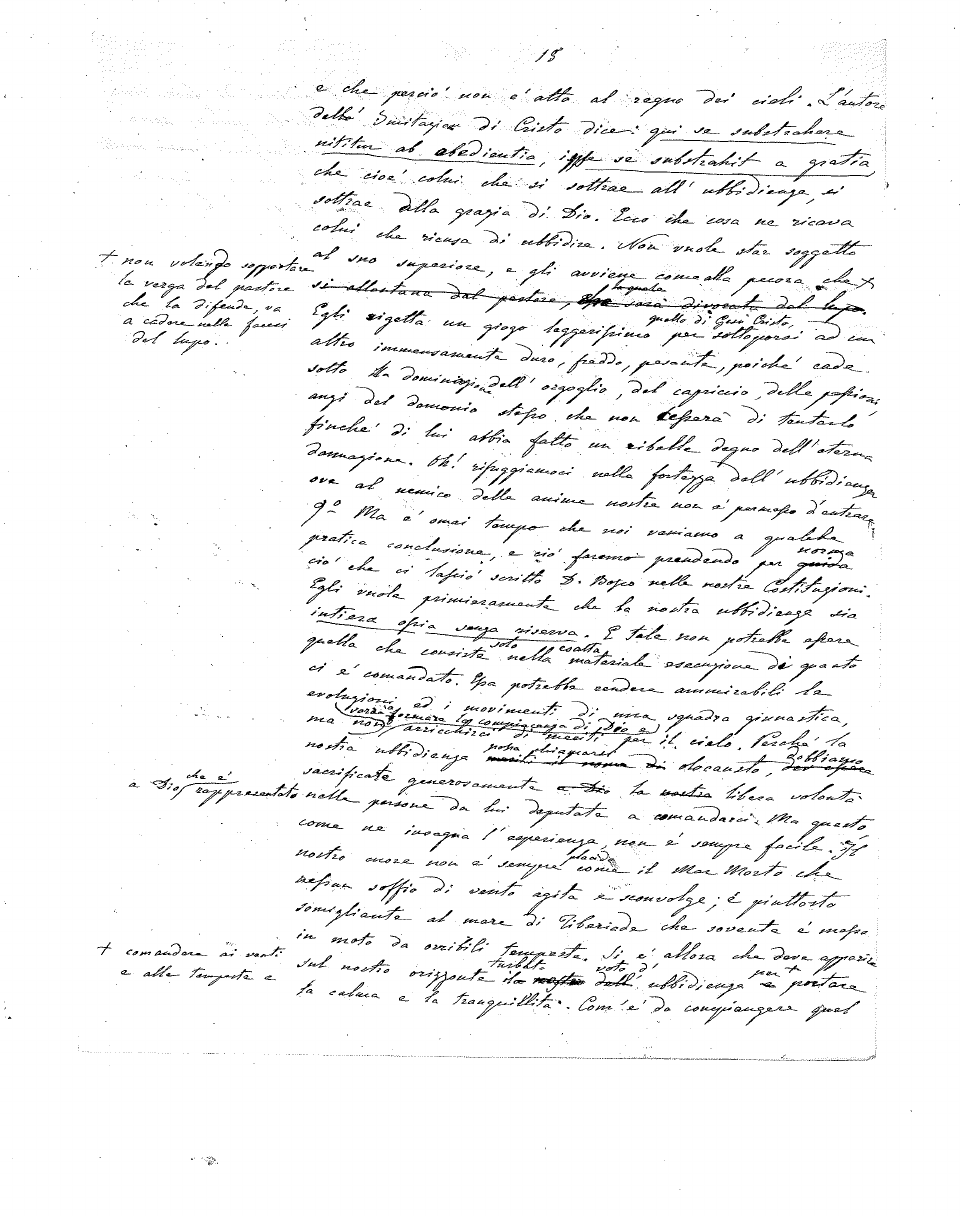 18
e che perciò non è atto al regno dei cieli. L'autore
dell' Imitazion di Cristo dice: qui se substrahere
nititur ab obedientia, ipse se substrahit a gratia,
che cioè colui che si sottrae all' ubbidienza, si
sottrae dalla grazia di Dio. Ecco che cosa ne ricava
colui che ricusa di ubbidire. Non vuole star soggetto
al suo superiore, e gli avviene come alla pecora che +
+ non volendo sopportare
la verga del pastore
che la difende, va
a cadere nelle fauci
del lupo.
la quale
si allontana dal pastore, che sarà divorata dal lupo.
quello di Gesù Cristo,
Egli rigetta un giogo leggerissimo per sottoporsi ad un
altro immensamente duro, freddo, pesante, poiché cade
sotto la dominazione dell' orgoglio, del capriccio, delle passioni
anzi del demonio stesso che non cesserà di tentarlo
finché di lui abbia fatto un ribelle degno dell' eterna
dannazione. Oh! rifuggiamoci nella fortezza dell' ubbidienza
ove al nemico delle anime nostre non è permesso d'entrare.
9º Ma è omai tempo che noi veniamo a qualche
norma
pratica conclusione, e ciò faremo prendendo per guida
ciò che ci lasciò scritto D. Bosco nelle nostre Costituzioni.
Egli vuole primieramente che la nostra ubbidienza sia
intiera ossia senza riserva. E tale non potrebbe essere
solo esatta
quella che consiste nella materiale esecuzione di quanto
ci è comandato. Essa potrebbe rendere ammirabili le
evoluzioni ed i movimenti di una squadra ginnastica,
formare la compiacenza di Dio e
ma non arricchirci di meriti per il cielo. Perché la
possa chiamarsi dobbiamo
nostra ubbidienza meriti il nome di olocausto, dev' essere
sacrificare generosamente a Dio la nostra libera volontà
che è
a Dio rappresentato
nelle persone da lui deputate a comandarci. Ma questo
come ne insegna l' esperienza, non è sempre facile. Il
placido
nostro cuore non è sempre come il Mar Morto che
nessun soffio di vento agita e sconvolge; è piuttosto
somigliante al mare di Tiberiade che sovente è messo
in moto da orribili tempeste. Si è allora che deve apparire
+ comandare ai venti
e alle tempeste e
turbato voto di per +
sul nostro orizzonte il nostro dell' ubbidienza e portare
la calma e la tranquillità. Com' è da compiangere quel